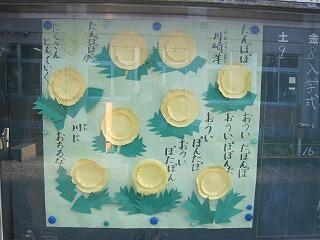 たんぽぽ
川崎洋
たんぽぽが
たくさん
とんでいく
おうい たぽんぽ
おうい ぽぽんた
おうい ぽんたぽ
おうい ぽたぽん
川に
おちるな
金 8 入学式
土 9
16